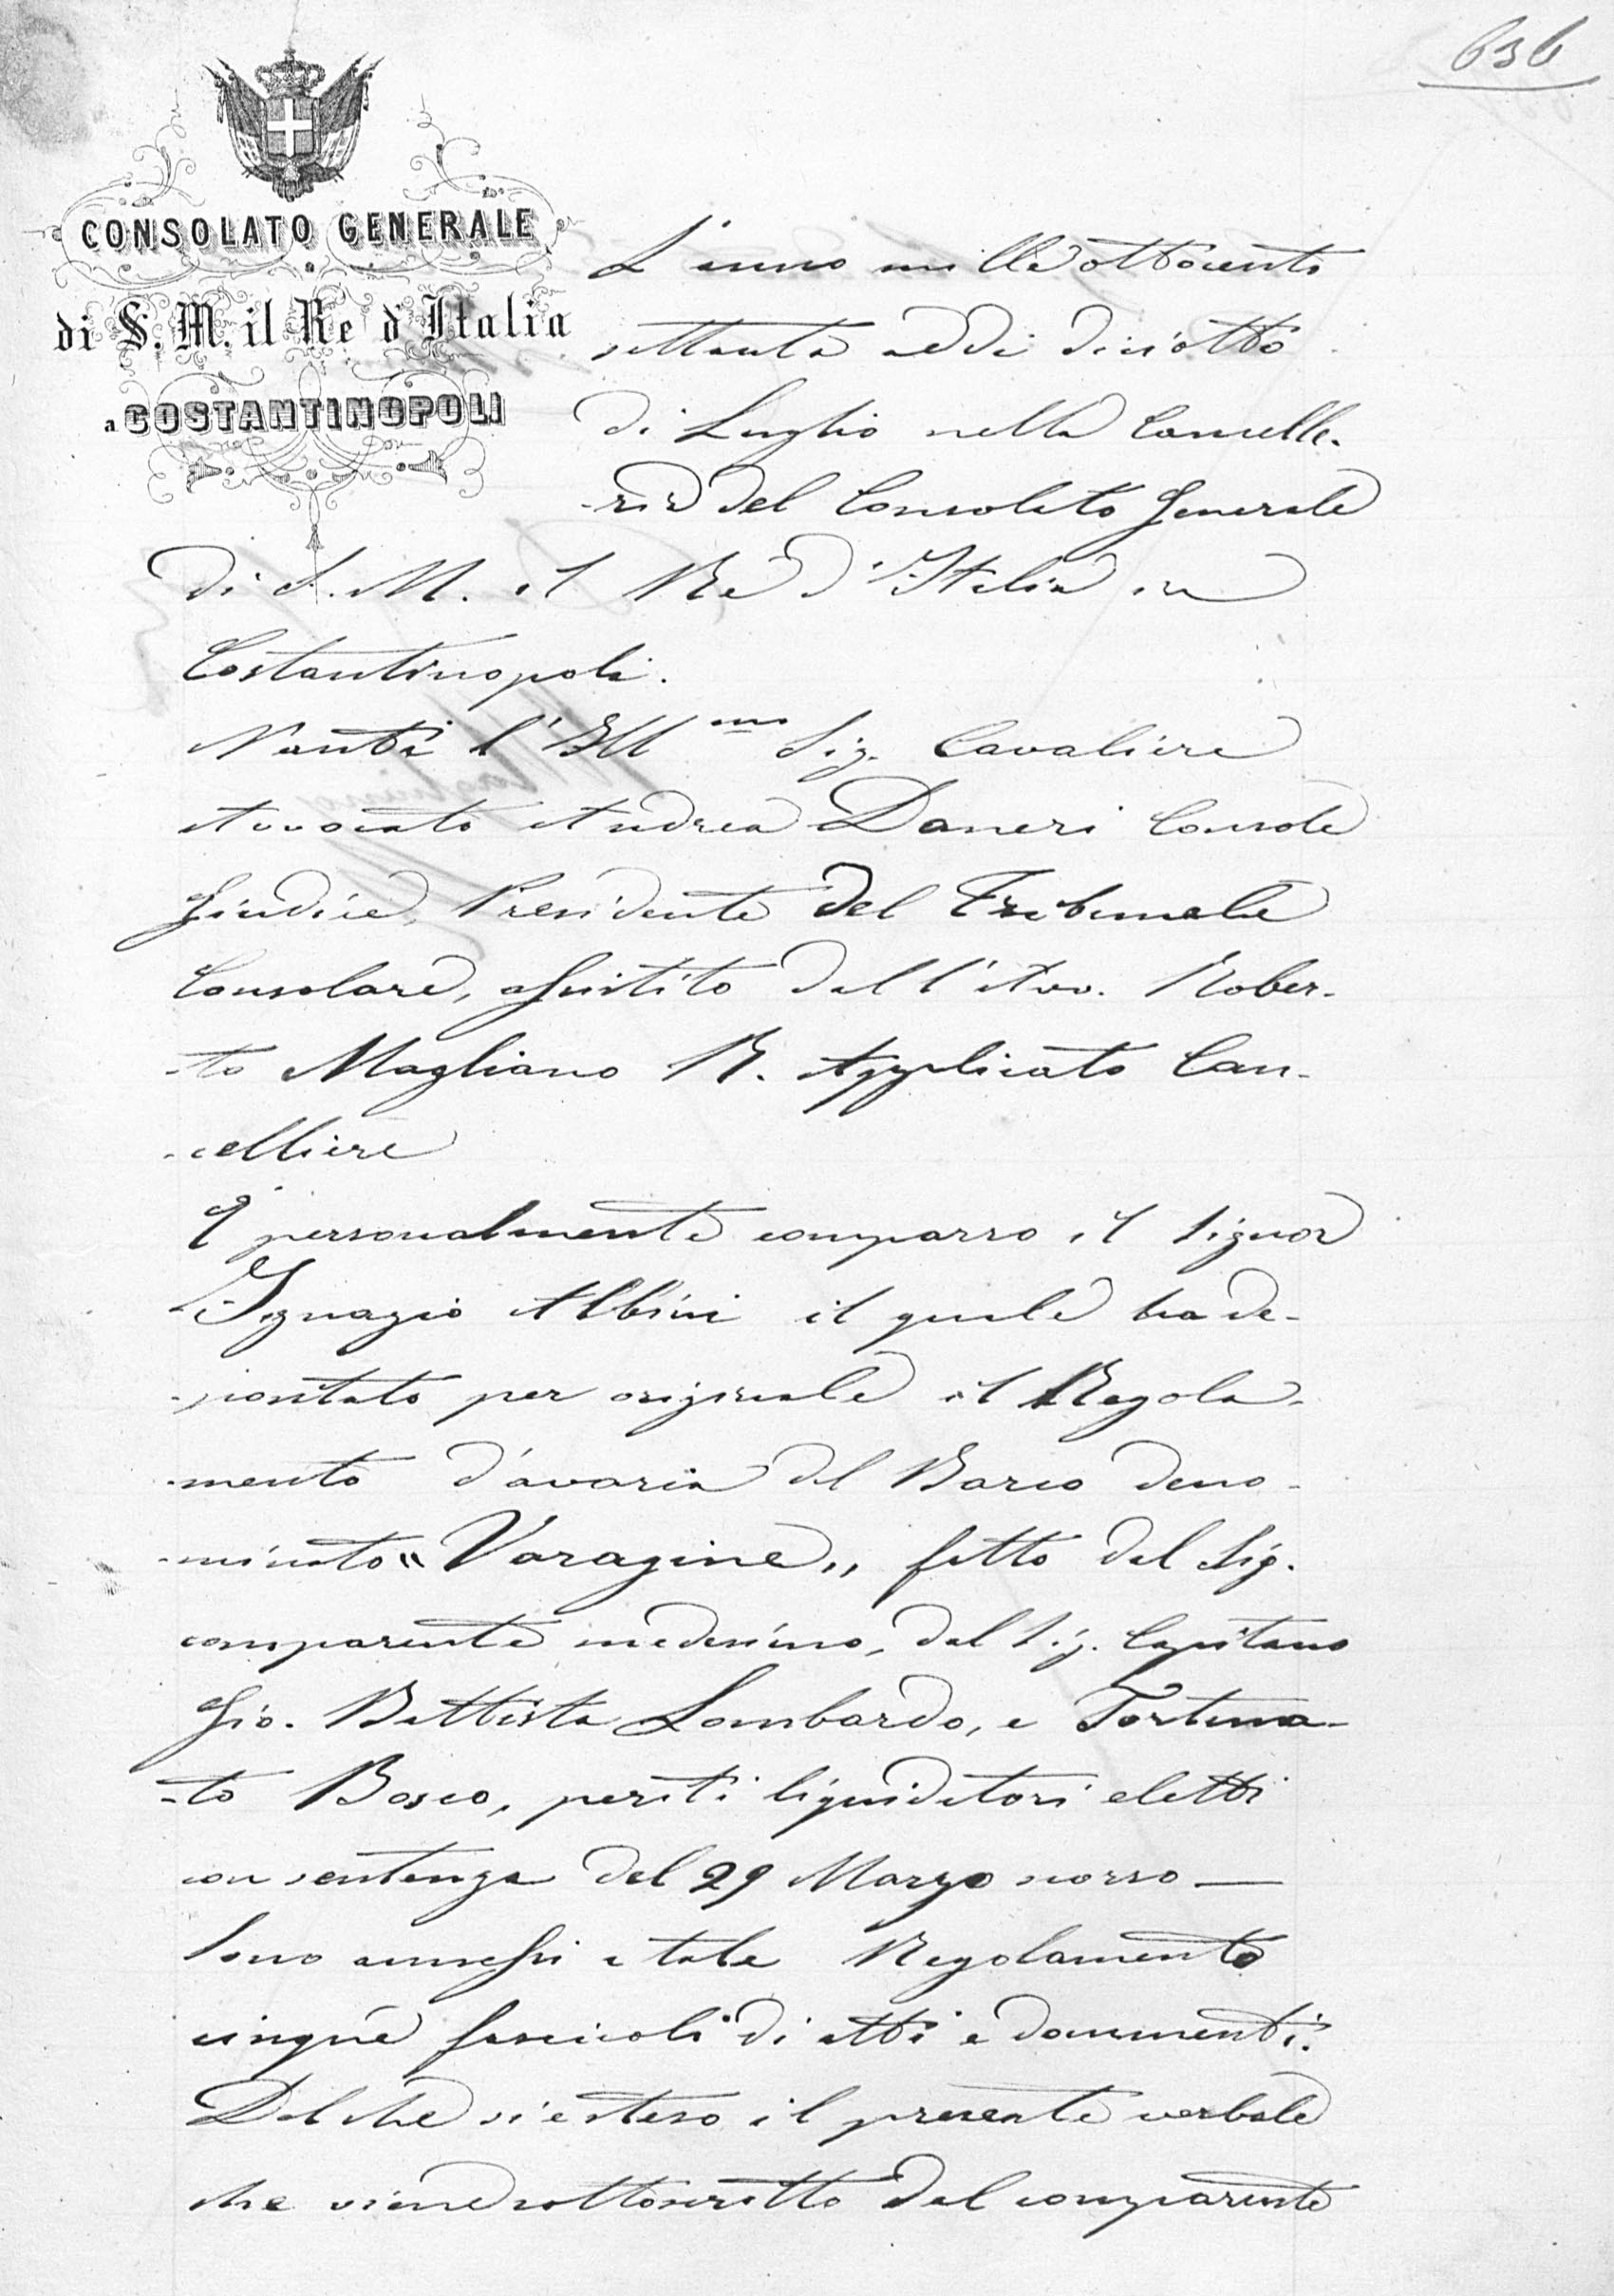 636
CONSOLATO GENERALE
di S. M. il Re d'Italia
a COSTANTINOPOLI
L'anno mille ottocento
settanta addi diciotto
di Luglio nella Cancelle-
-ria del Consolato Generale
di S. M. il Re d'Italia in
Costantinopoli.
Nanti l'Ill.mo Sig. Cavaliere
Avvocato Andrea Daneri Console
Giudice, Presidente del Tribunale
Consolare, assistito dall'Avv. Rober-
-to Magliano R. Applicato Can-
-celliere
È personalmente comparso il Signor
Ignazio Albini il quale ha de-
-positato per originale il Regola-
-mento d'avaria del Barco deno-
-minato "Varagine" fatto dal Sig.
comparente medesimo, dal Sig. Capitano
Gio. Battista Lombardo, e Fortuna-
-to Bosco, periti liquidatori eletti
con sentenza del 29 Marzo scorso —
Sono annessi a tale Regolamento
cinque fascicoli di atti e documenti.
Del che si è steso il presente verbale
che viene sottoscritto dal comparente